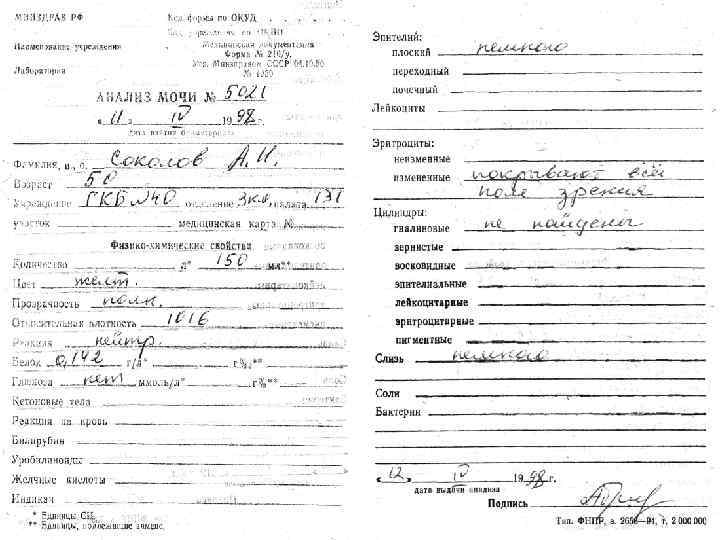 МИНЗДРАВ РФ
Код формы по ОКУД
Код учреждения по ОКПО
Наименование учреждения
Медицинская документация
Форма № 210/у.
Лаборатория
Утв. Минздравом СССР 04.10.80
№ 1030
АНАЛИЗ МОЧИ № 5021
« 11 » IV 1998 г.
дата взятия биоматериала
Фамилия, и., о. Соколов А. И.
Возраст 50
Учреждение ГКБ №40 отделение 3кл. палата 131
участок медицинская карта №
Физико-химические свойства
Количество л* 150 мл**
Цвет желт.
Прозрачность полн.
Относительная плотность 1016
Реакция нейтр.
Белок 0,142 г/л* г%**
Глюкоза нет ммоль/л* г%**
Кетоновые тела
Реакция на кровь
Билирубин
Уробилиноиды
Желчные кислоты
Индикан
* Единицы СИ.
** Единицы, подлежащие замене.
Эпителий:
плоский немного
переходный
почечный
Лейкоциты
Эритроциты:
неизменные
измененные покрывают все
поле зрения
Цилиндры:
гиалиновые не найдены
зернистые
восковидные
эпителиальные
лейкоцитарные
эритроцитарные
пигментные
Слизь немного
Соли
Бактерии
« 12 » IV 1998 г.
дата выдачи анализа
Подпись
Тип. ФНПР, з. 2656—94, т. 2 000 000